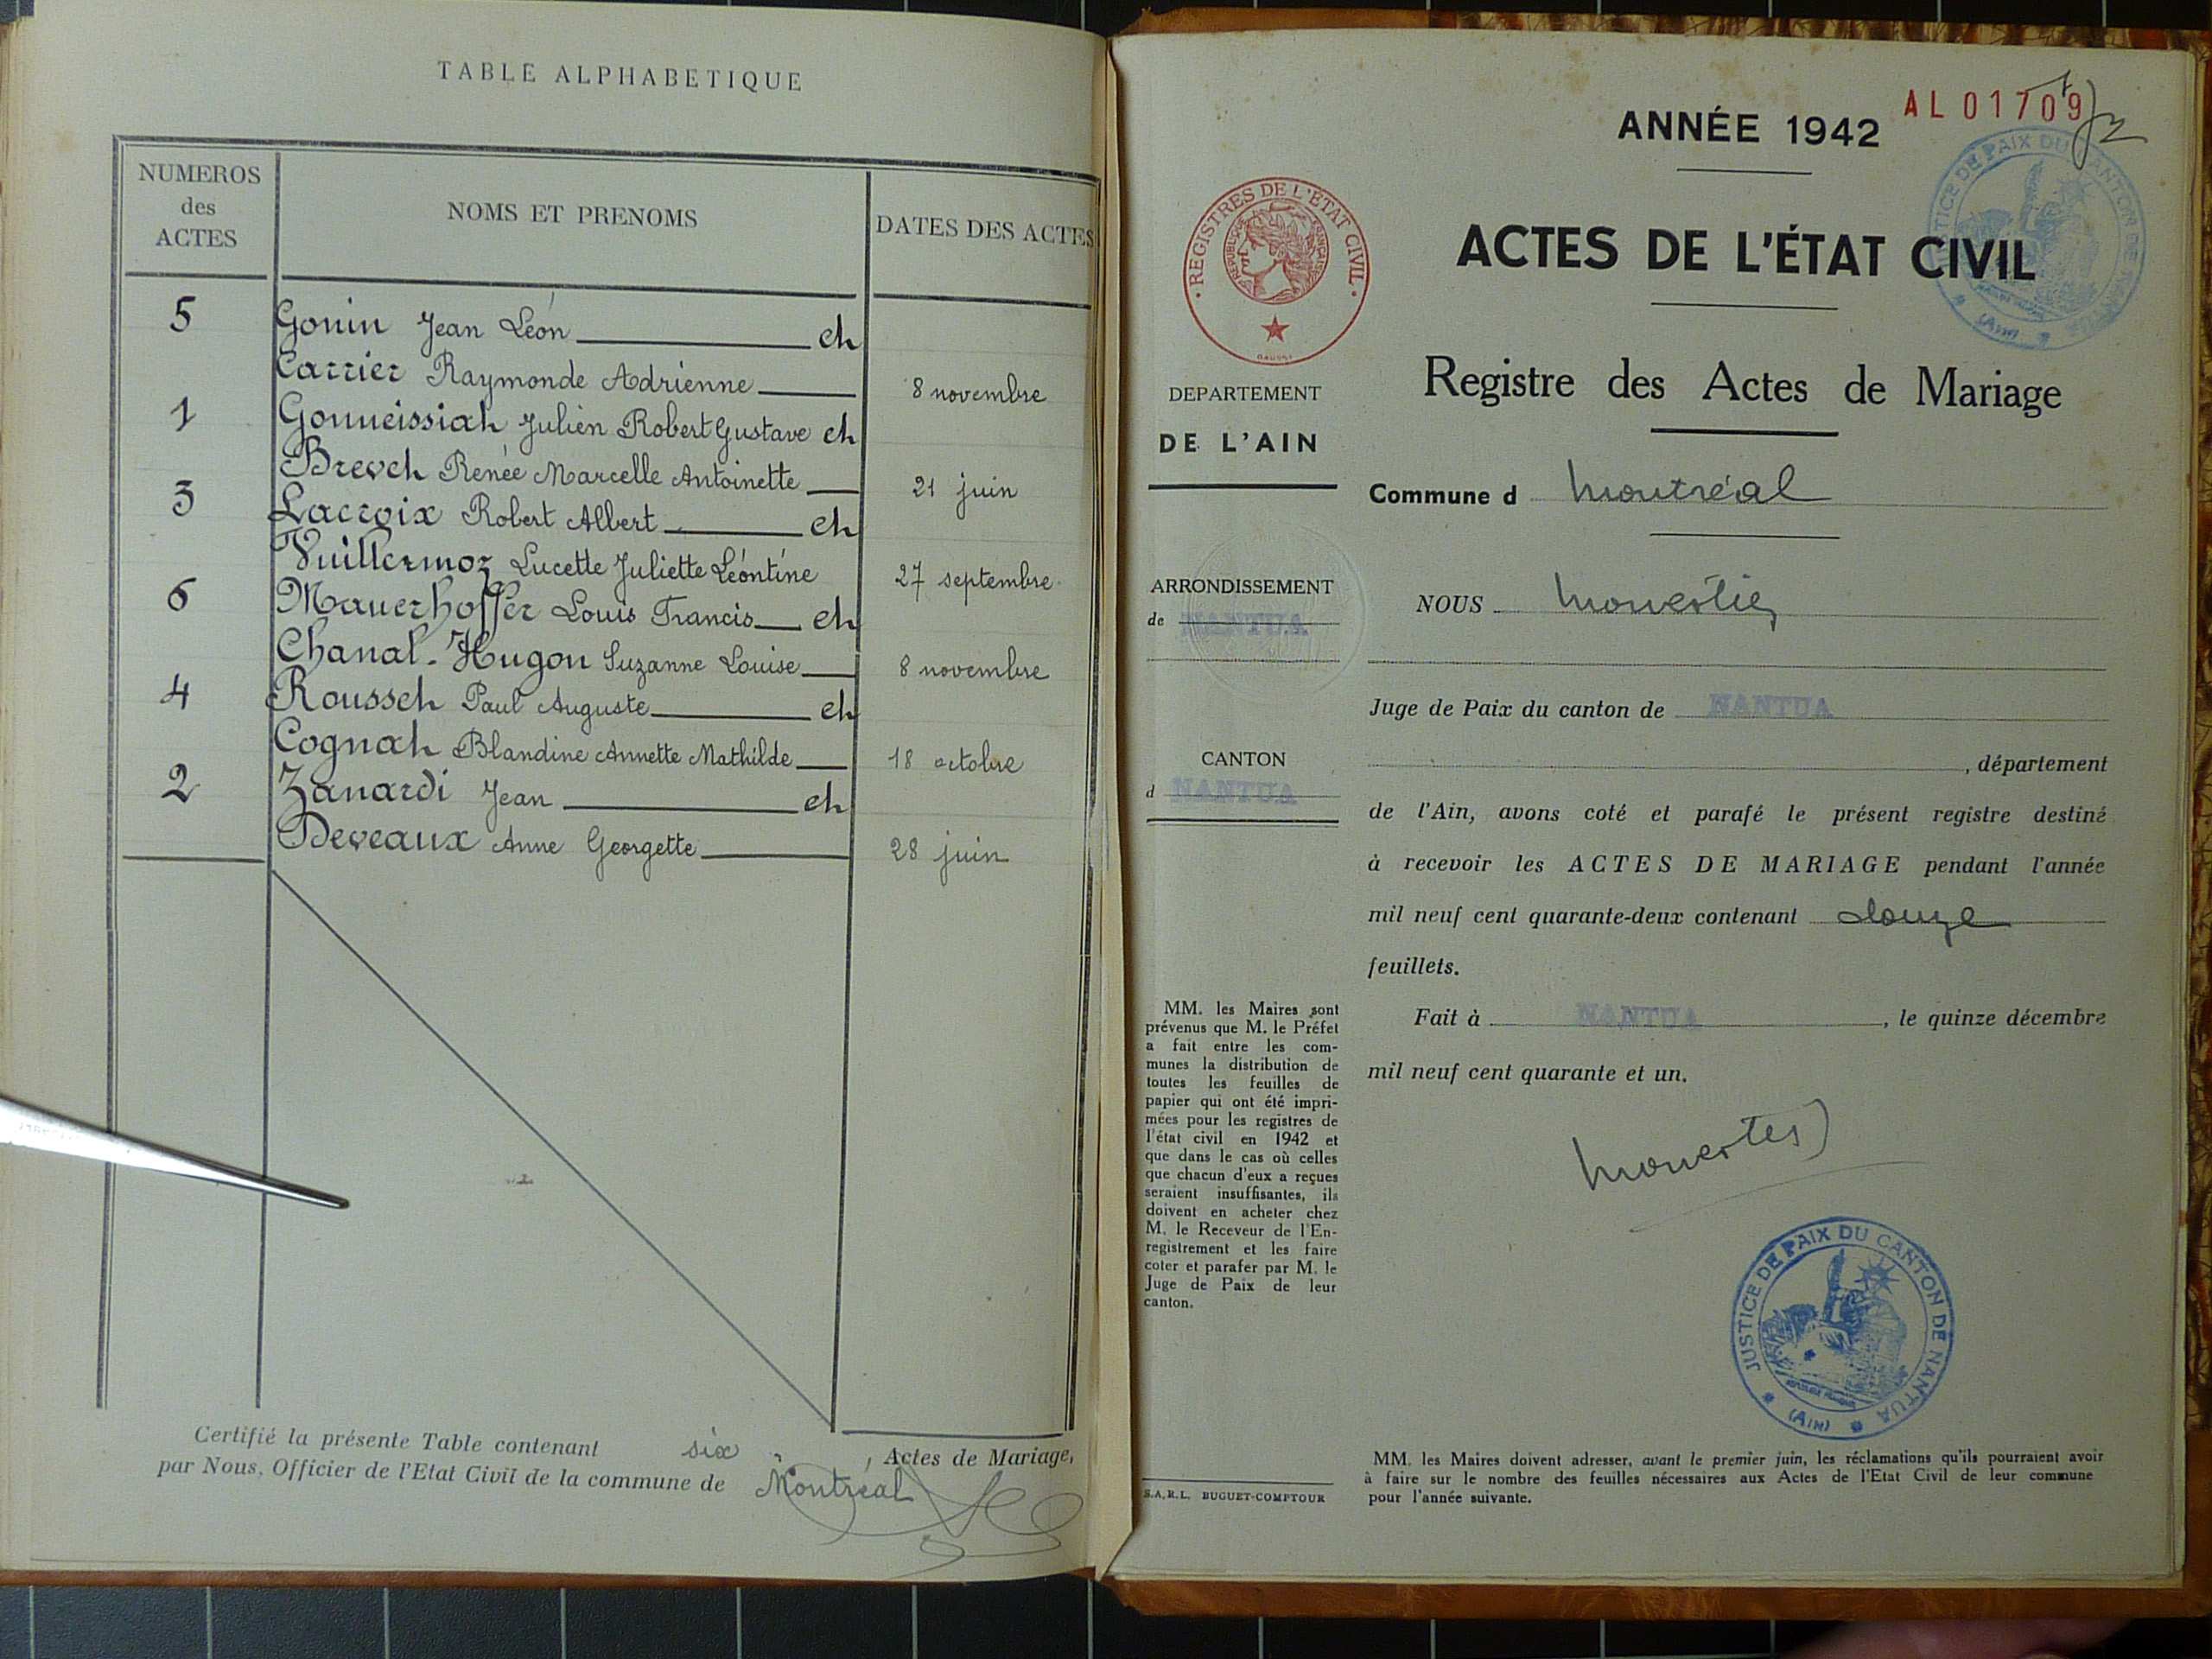 TABLE ALPHABETIQUE
NUMEROS
des
ACTES
NOMS ET PRENOMS
DATES DES ACTES
5 Gonin Jean Léon et
Carrier Raymonde Adrienne 8 novembre
1 Gonneissiat Julien Robert Gustave et
Brevet Renée Marcelle Antoinette 21 juin
3 Lacroix Robert Albert et
Vuillermoz Lucette Juliette Léontine 27 septembre
6 Mauerhoffer Louis Francis et
Chanal-Hugon Suzanne Louise 8 novembre
4 Rousset Paul Auguste et
Cognat Blandine Annette Mathilde 18 octobre
2 Zanardi Jean et
Deveaux Anne Georgette 28 juin
Certifié la présente Table contenant six Actes de Mariage,
par Nous, Officier de l'Etat Civil de la commune de Montréal
AL 01709
ANNÉE 1942
ACTES DE L'ÉTAT CIVIL
Registre des Actes de Mariage
REGISTRES DE L'ÉTAT CIVIL
RÉPUBLIQUE FRANÇAISE
JUSTICE DE PAIX DU CANTON DE NANTUA
(AIN)
DEPARTEMENT
DE L'AIN
ARRONDISSEMENT
de NANTUA
CANTON
d NANTUA
MM. les Maires sont
prévenus que M. le Préfet
a fait entre les com-
munes la distribution de
toutes les feuilles de
papier qui ont été impri-
mées pour les registres de
l'état civil en 1942 et
que dans le cas où celles
que chacun d'eux a reçues
seraient insuffisantes, ils
doivent en acheter chez
M. le Receveur de l'En-
registrement et les faire
coter et parafer par M. le
Juge de Paix de leur
canton.
S.A.R.L. BUGUET-COMPTOUR
Commune d Montréal
NOUS
Juge de Paix du canton de NANTUA
, département
de l'Ain, avons coté et parafé le présent registre destiné
à recevoir les ACTES DE MARIAGE pendant l'année
mil neuf cent quarante-deux contenant douze
feuillets.
Fait à NANTUA, le quinze décembre
mil neuf cent quarante et un.
JUSTICE DE PAIX DU CANTON DE NANTUA
(AIN)
MM. les Maires doivent adresser, avant le premier juin, les réclamations qu'ils pourraient avoir
à faire sur le nombre des feuilles nécessaires aux Actes de l'Etat Civil de leur commune
pour l'année suivante.